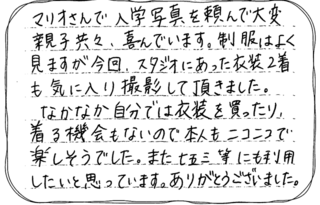 マリオさんで入学写真を頼んで大変
親子共々、喜んでいます。制服はよく
見ますが今回、スタジオにあった衣装2着
も気に入り撮影して頂きました。
なかなか自分では衣装を買ったり、
着る機会もないので本人もニコニコで
楽しそうでした。また七五三等にも利用
したいと思っています。ありがとうございました。